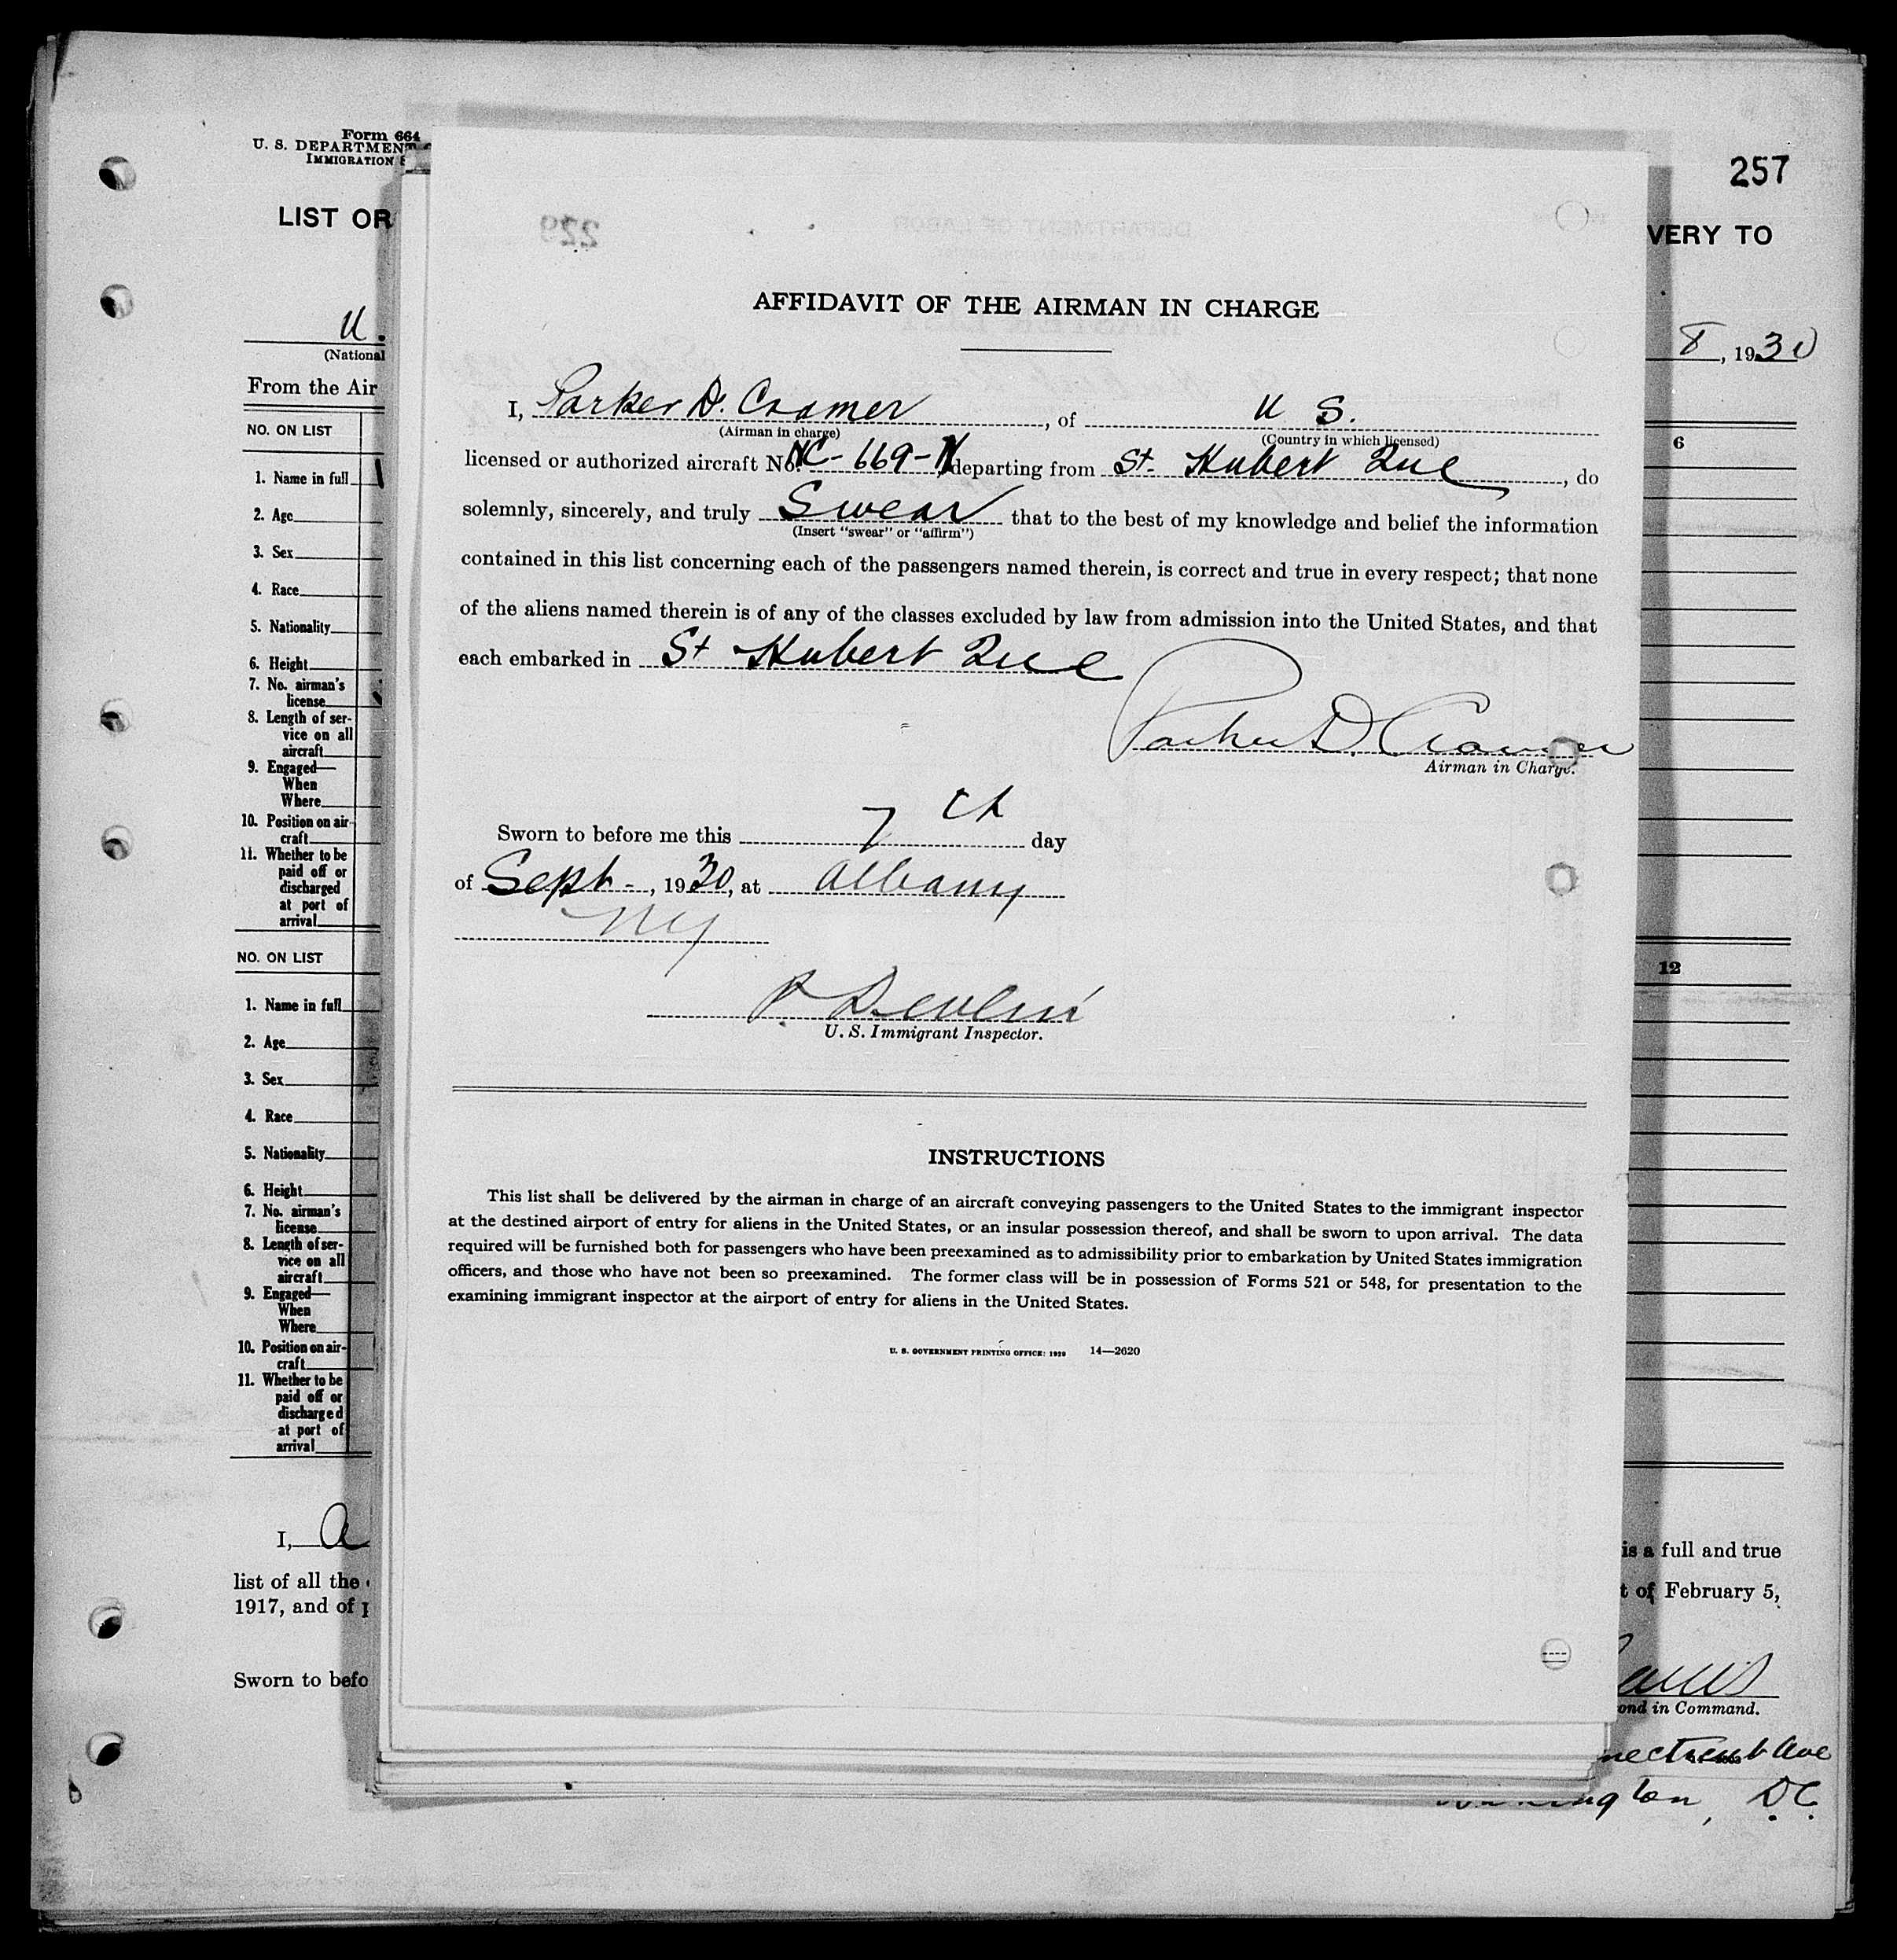 Form 664
U. S. DEPARTMENT
IMMIGRATION S
257
LIST OR
VERY TO
U.
(National
8, 1930
From the Air
NO. ON LIST
6
1. Name in full
2. Age
3. Sex
4. Race
5. Nationality
6. Height
7. No. airman's
license
8. Length of ser-
vice on all
aircraft
9. Engaged—
When
Where
10. Position on air-
craft
11. Whether to be
paid off or
discharged
at port of
arrival
NO. ON LIST
12
1. Name in full
2. Age
3. Sex
4. Race
5. Nationality
6. Height
7. No. airman's
license
8. Length of ser-
vice on all
aircraft
9. Engaged—
When
Where
10. Position on air-
craft
11. Whether to be
paid off or
discharged
at port of
arrival
I, A
is a full and true
list of all the
t of February 5,
1917, and of p
Sworn to befo
ond in Command.
necticut Ave
ington, D.C.
229
AFFIDAVIT OF THE AIRMAN IN CHARGE
I, Parker D. Cramer, of U S.
(Airman in charge) (Country in which licensed)
licensed or authorized aircraft No. NC-669-N departing from St. Hubert Que, do
solemnly, sincerely, and truly Swear that to the best of my knowledge and belief the information
(Insert "swear" or "affirm")
contained in this list concerning each of the passengers named therein, is correct and true in every respect; that none
of the aliens named therein is of any of the classes excluded by law from admission into the United States, and that
each embarked in St Hubert Que
Parker D. Cramer
Airman in Charge.
Sworn to before me this 7th day
of Sept-, 1930, at Albany
NY
P. Devlin
U. S. Immigrant Inspector.
INSTRUCTIONS
This list shall be delivered by the airman in charge of an aircraft conveying passengers to the United States to the immigrant inspector
at the destined airport of entry for aliens in the United States, or an insular possession thereof, and shall be sworn to upon arrival. The data
required will be furnished both for passengers who have been preexamined as to admissibility prior to embarkation by United States immigration
officers, and those who have not been so preexamined. The former class will be in possession of Forms 521 or 548, for presentation to the
examining immigrant inspector at the airport of entry for aliens in the United States.
U. S. GOVERNMENT PRINTING OFFICE: 1929 14—2620